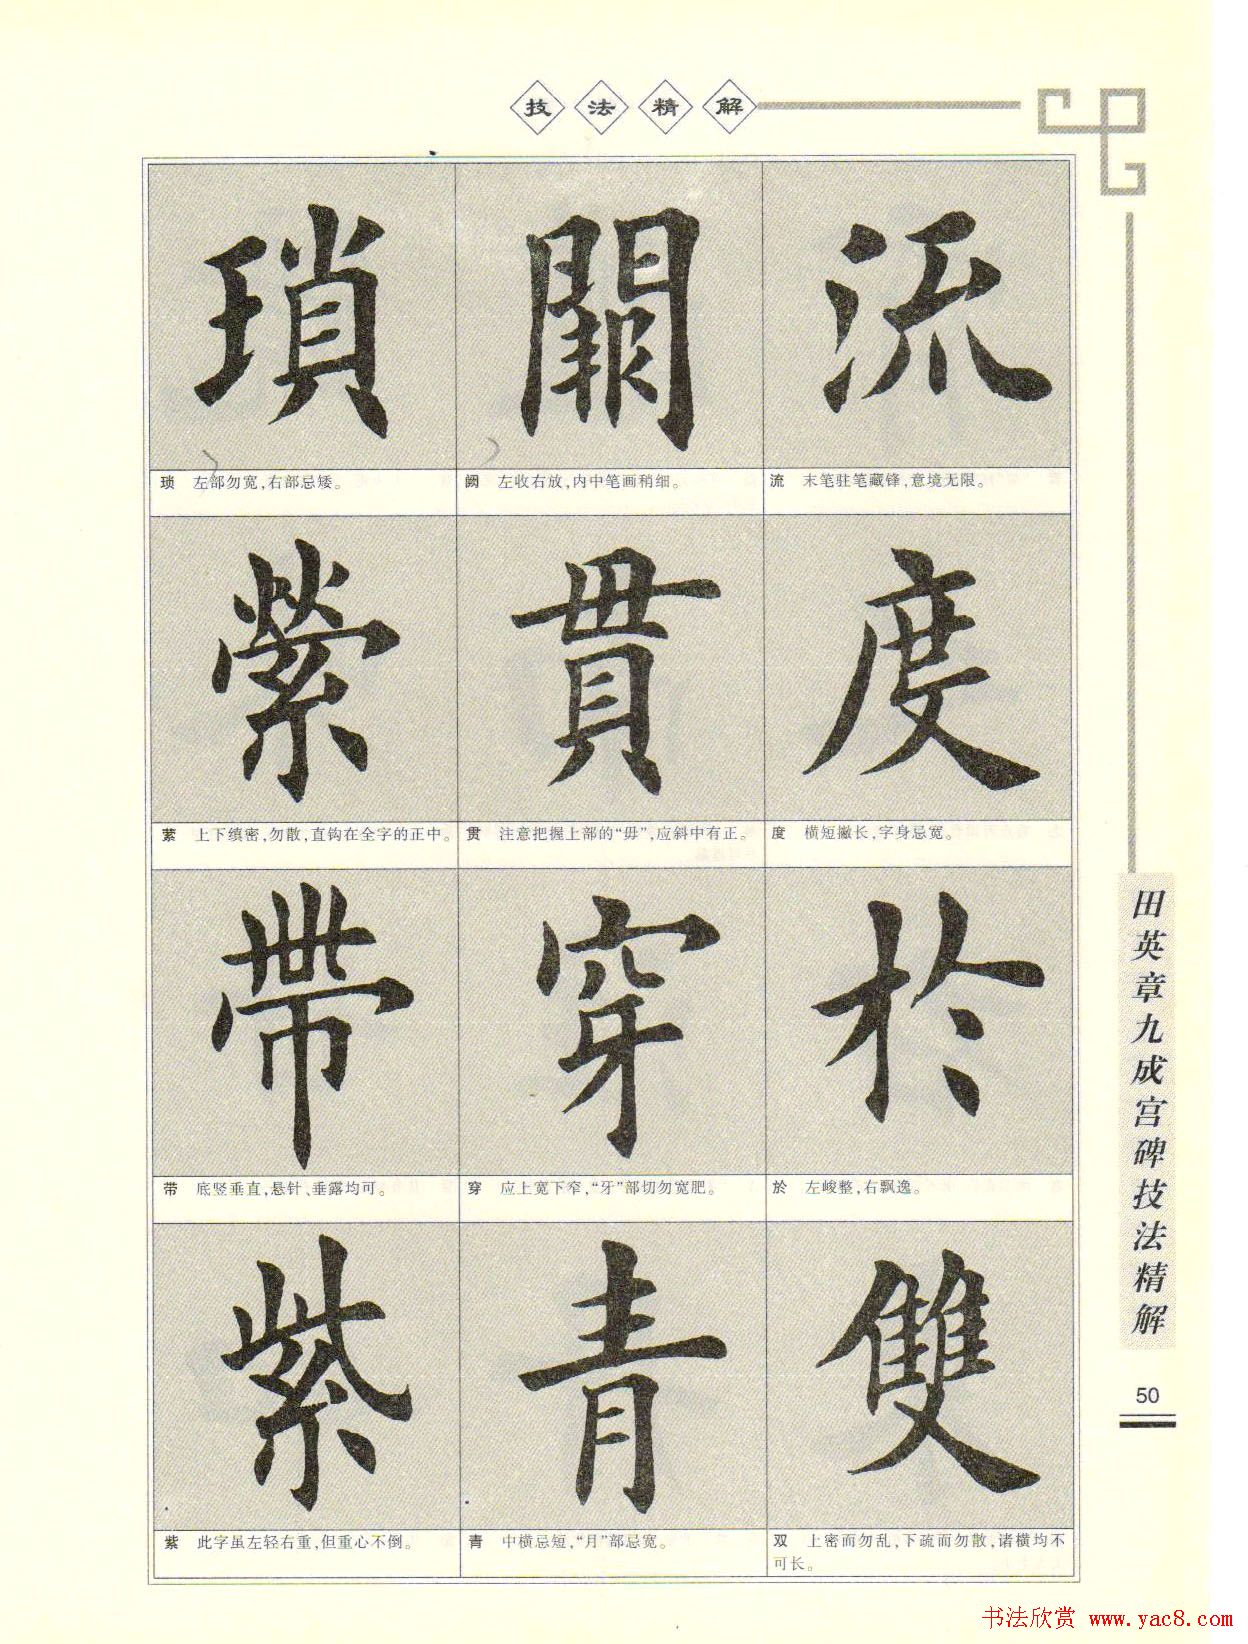 技法精解
瑣 闕 流
琐 左部勿宽,右部忌矮。
阙 左收右放,内中笔画稍细。
流 末笔驻笔藏锋,意境无限。
縈 貫 度
萦 上下缜密,勿散,直钩在全字的正中。
贯 注意把握上部的“毋”,应斜中有正。
度 横短撇长,字身忌宽。
帶 穿 於
带 底竖垂直,悬针、垂露均可。
穿 应上宽下窄,“牙”部切勿宽肥。
於 左峻整,右飘逸。
紫 青 雙
紫 此字虽左轻右重,但重心不倒。
青 中横忌短,“月”部忌宽。
双 上密而勿乱,下疏而勿散,诸横均不
可长。
田英章九成宫碑技法精解
50
书法欣赏 www.yac8.com